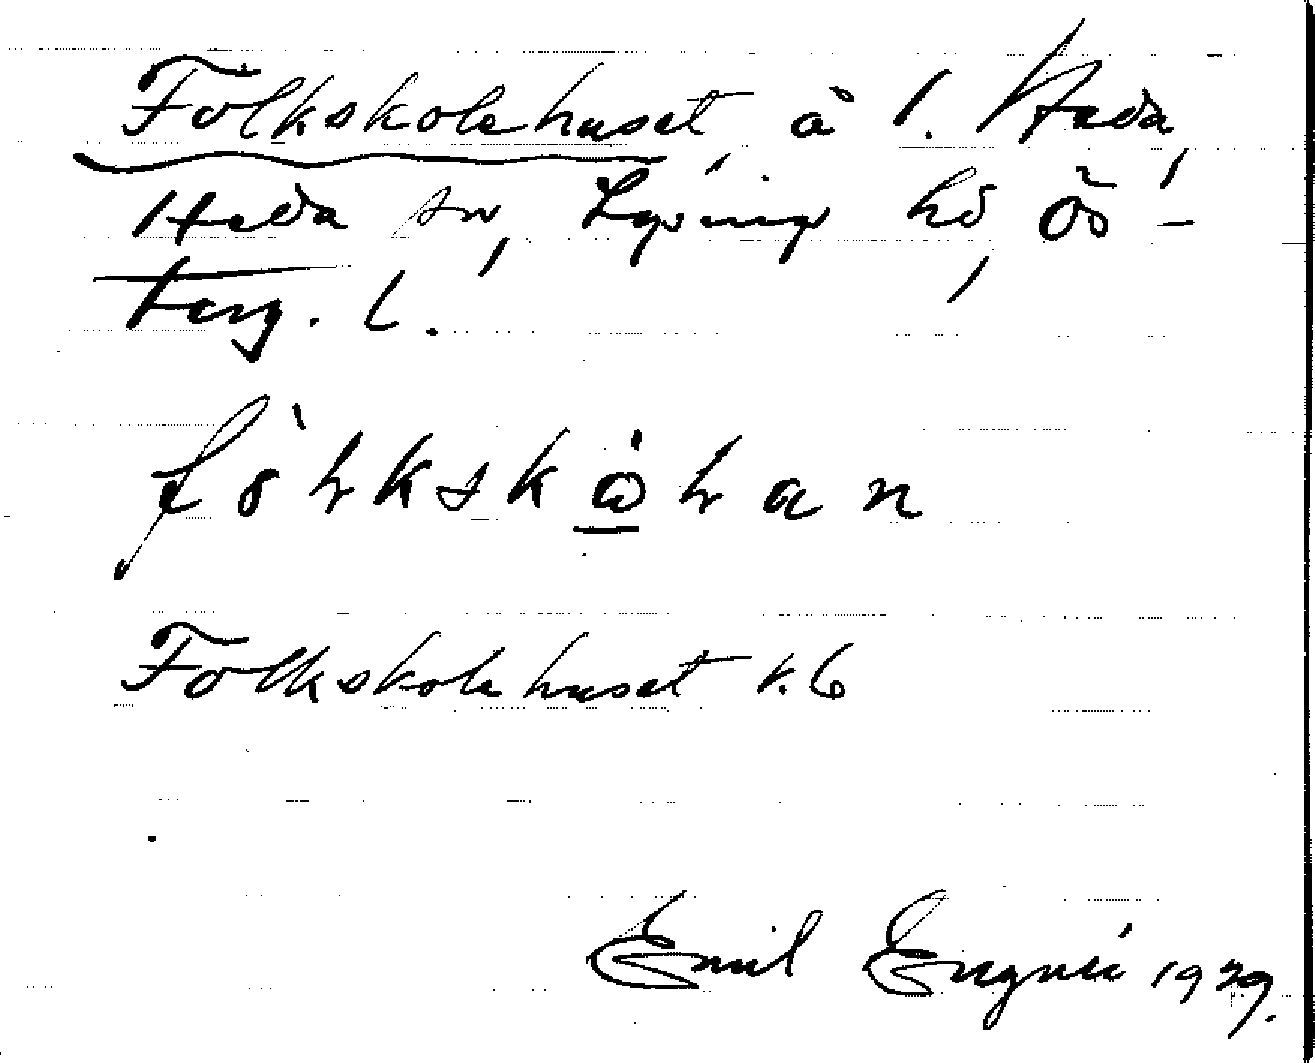 Folkskolehuset, å 1. Heda,
Heda sn, Lysings hd, Ös-
terg. l.
fòlkskålan
Folkskolehuset k. 6
Emil 1929.